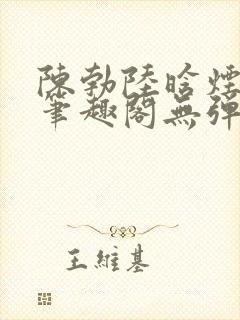 陳勃陸晗煙
筆趣閣無彈
王維基